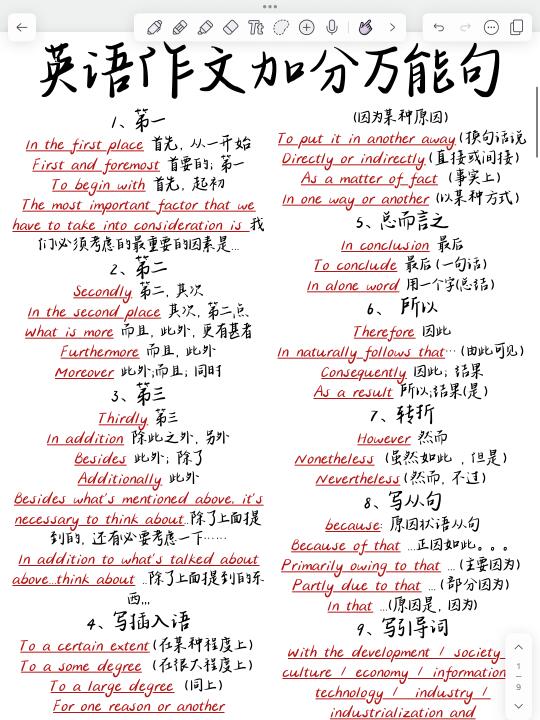 英语作文加分万能句
1、第一
In the first place 首先, 从一开始
First and foremost 首要的; 第一
To begin with 首先, 起初
The most important factor that we
have to take into consideration is 我
们必须考虑的最重要的因素是...
2、第二
Secondly 第二, 其次
In the second place 其次, 第二点
What is more 而且, 此外, 更有甚者
Furthermore 而且, 此外
Moreover 此外;而且; 同时
3、第三
Thirdly 第三
In addition 除此之外, 另外
Besides 此外; 除了
Additionally 此外
Besides what's mentioned above, it's
necessary to think about..除了上面提
到的, 还有必要考虑一下……
In addition to what's talked about
above...think about ...除了上面提到的东
西...
4、写插入语
To a certain extent (在某种程度上)
To a some degree (在很大程度上)
To a large degree (同上)
For one reason or another
(因为某种原因)
To put it in another away (换句话说
Directly or indirectly (直接或间接)
As a matter of fact (事实上)
In one way or another (以某种方式)
5、总而言之
In conclusion 最后
To conclude 最后 (一句话)
In alone word 用一个字(总结)
6、 所以
Therefore 因此
In naturally follows that… (由此可见)
Consequently 因此; 结果
As a result 所以;结果(是)
7、转折
However 然而
Nonetheless (虽然如此 , 但是)
Nevertheless (然而, 不过)
8、写从句
because: 原因状语从句
Because of that ...正因如此。。。
Primarily owing to that ... (主要因为)
Partly due to that ... (部分因为)
In that ...(原因是, 因为)
9、写引导词
With the development / society
culture / economy / information
technology / industry /
industrialization and
1
9